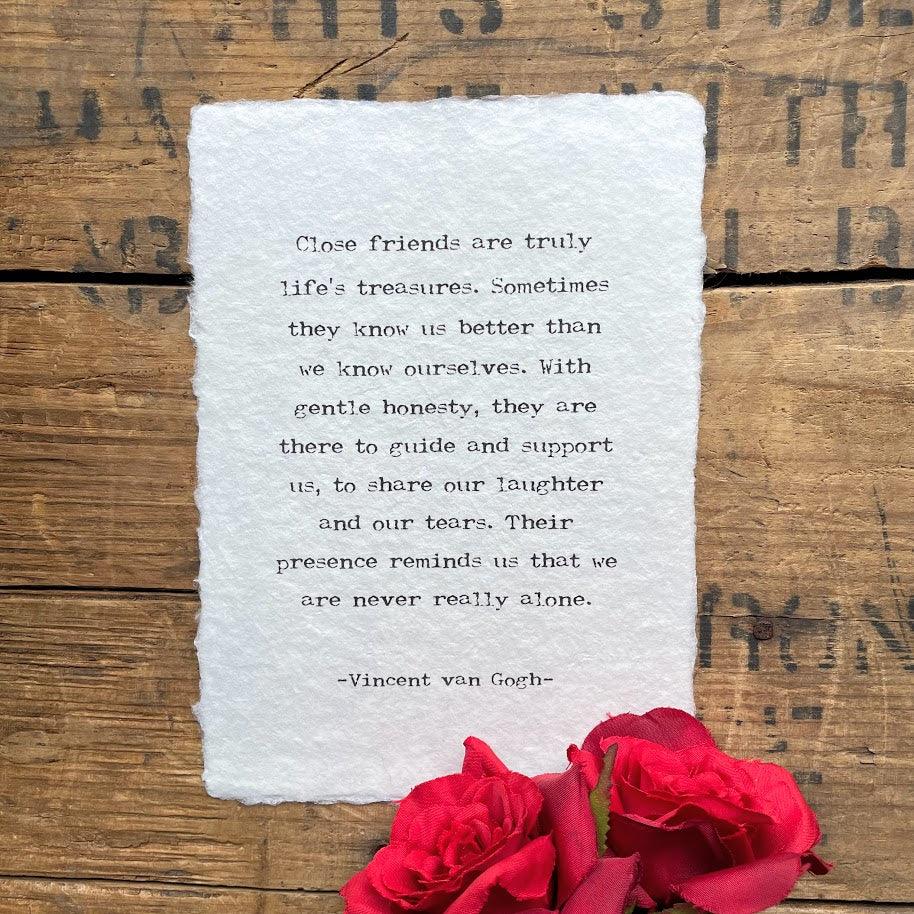 Close friends are truly
life's treasures. Sometimes
they know us better than
we know ourselves. With
gentle honesty, they are
there to guide and support
us, to share our laughter
and our tears. Their
presence reminds us that we
are never really alone.
-Vincent van Gogh-